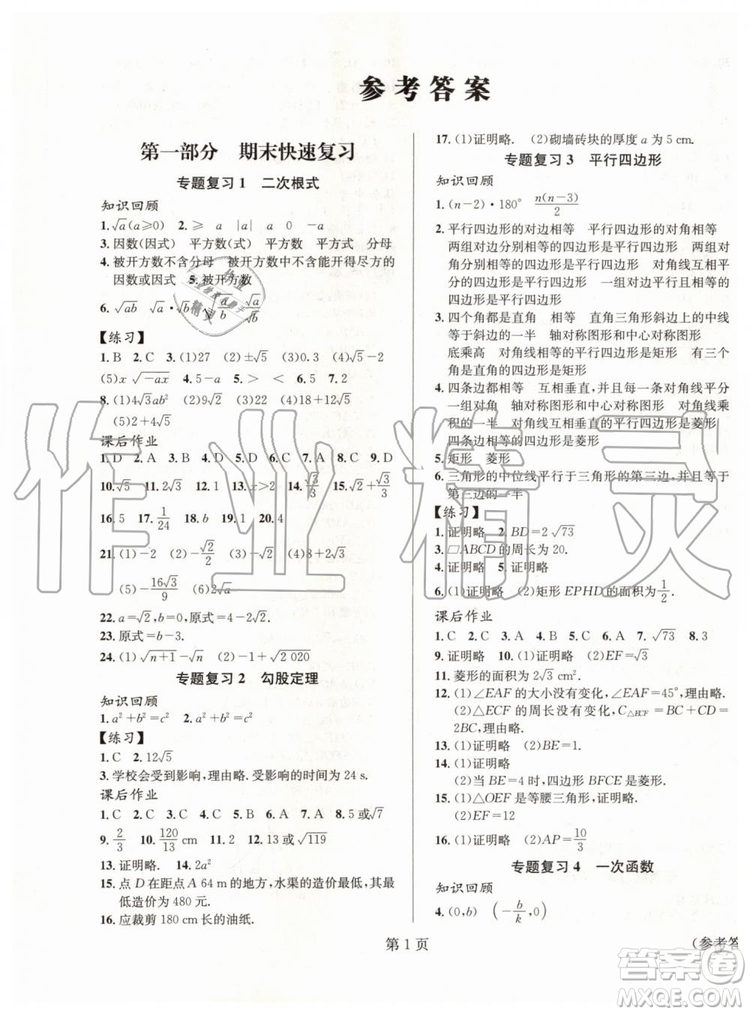 参考答案
第一部分 期末快速复习
专题复习1 二次根式
知识回顾
1.√a(a≥0) 2.≥ a |a| a 0 -a
3.因数(因式) 平方数(式) 平方数(式) 平方式 分母
4.被开方数不含分母 被开方数中不含能开得尽方的
因数或因式 5.被开方数
6.√ab √a·√b √a/√b √(a/b)
【练习】
1.B 2.C 3.(1)27 (2)±√5 (3)0.3 (4)√5
(5)x √-ax 4.5 5.> < 6.√5 7.C
8.(1)4√3ab² (2)9√2 (3)2√2 (4)18+12√2
(5)2+4√5
课后作业
1.D 2.A 3.B 4.D 5.C 6.A 7.C 8.D 9.C
10.√5 11.2√3 12.1 13.x>2 14.√3/3 15.√3/3
16.5 17.1/24 18.b 19.1 20.4
21.(1)-2 (2)-√2/2 (3)-6√2 (4)8+2√3
(5)-16√3/9 (6)-5√2
22.a=√2,b=0,原式=4-8√2.
23.原式=b-3.
24.(1)√(n+1)-√n (2)-1+√2 020
专题复习2 勾股定理
知识回顾
1.a²+b²=c² 2.a²+b²=c²
【练习】
1.C 2.12√5
3.学校会受到影响,理由略.受影响的时间为24 s.
课后作业
1.C 2.A 3.C 4.C 5.C 6.B 7.D 8.D
9.2/3 10.120/13 cm 11.2 12.13或√119
13.证明略. 14.2a²
15.点D在距A 64 m的地方,水渠的造价最低,最低
造价为480元.
16.应裁剪180 cm长的油纸.
17.(1)证明略. (2)砌墙砖块的厚度a为5 cm.
专题复习3 平行四边形
知识回顾
1.(n-2)·180° n(n-3)/2
2.平行四边形的对边相等 平行四边形的对角相等
两组对边分别相等的四边形是平行四边形 两组
对角分别相等的四边形是平行四边形 对角线互相
平分的四边形是平行四边形 一组对边平行且相
等的四边形是平行四边形
3.四个角都是直角 相等 直角三角形斜边上的中线
等于斜边的一半 轴对称图形和中心对称图形
底乘高 对角线相等的平行四边形是矩形 有三个
角是直角的四边形是矩形
4.四条边都相等 互相垂直,并且每一条对角线平分
一组对角 轴对称图形和中心对称图形 对角线乘
积的一半 对角线互相垂直的平行四边形是菱形
四条边相等的四边形是菱形
5.矩形 菱形
6.三角形的中位线平行于三角形的第三边,并且等
于第三边的一半
【练习】
1.证明略 2.BD=2√73
3.□ABCD的周长为20.
4.证明略 5.证明略
6.(1)证明略 (2)矩形EPHD的面积为1/2.
课后作业
1.C 2.C 3.C 4.A 5.A 6.A 7.√73 8.①③④
9.证明略 10.(1)证明略 (2)EF=√3
11.菱形的面积为2√3 cm².
12.(1)∠EAF的大小没有变化,∠EAF=45°,理由略.
(2)△ECF的周长没有变化,C△ECF=BC+CD,理
由略.
13.(1)证明略 (2)证明略
14.(1)证明略
(2)当BE=4时,四边形BFCE是菱形.
15.(1)△OEF是等腰三角形,理由略.
(2)EF=12
16.(1)证明略 (2)AP=60/13
专题复习4 一次函数
知识回顾
4.(0,b) (-b/k,0)
第1页
(参考答
作业精灵
答案圈
MXQE.COM